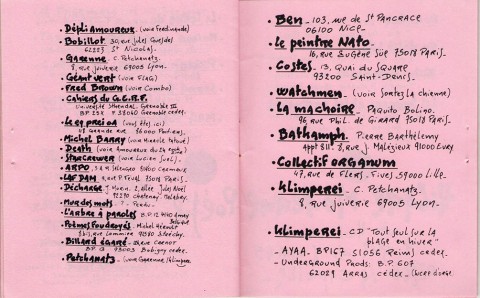 • Dépli Amoureux. (voir Ferdinande)
• Bobillot. 30, rue Jules Guesde
62223 St Nicolas.
• Garenne. C. Petchanatz.
8, rue Juiverie 69005 Lyon.
• Géant vert (voir FLAG)
• Fred Brown (voir Combo)
• Cahiers du G.E.R.F.
Université Stendhal, Grenoble III
BP 25X F 38040 Grenoble cedex.
• (vous êtes ici)
68 Grande rue 86000 Poitiers.
• Michel Barry (voir Hivrele Tatoué)
• Death (voir Amoureux du
• Starcrewer (voir Lucien Suel).
• ARPO.
• LAF DAM
75018 Paris.
• Décharge. J. Morin. 2, allée Jules Noël
92290 Chatenay Malabry.
• Mur des mots
... Perdu...
• L'arbre à paroles B.P. 12 4540 Amay
Belgique
• Poèmes Foudroyés. Michel Hérault
• Billard Égaré. Sadi Carnot
BP 93003 Bobigny cedex.
• Petchanatz. (voir Garenne/Klimperei.
• Ben - 103, rue de St Pancrace
06100 Nice.
• Le peintre Nato.
16, rue Eugène Sue 75018 Paris.
• Costes. 13, Quai du Square
93200 Saint-Denis.
• Watchmen (voir Sortez la chienne)
• La machoire. Paquito Bolino.
96, rue Phil. de Girard 75018 Paris.
• Bathamph. Pierre Barthélemy
Appt 811. 3, rue J. Malézieux 91000 Evry.
• Collectif organum
47, rue de Flers. Fives. 59000 Lille.
• Klimperei. C. Petchanatz.
8, rue Juiverie 69005 Lyon.
Klimperei. CD "Tout seul sur la
plage en hiver"
- AYAA. BP167 51056 Reims cedex.
- Underground Prods: B.P. 607
62029 Arras cedex.